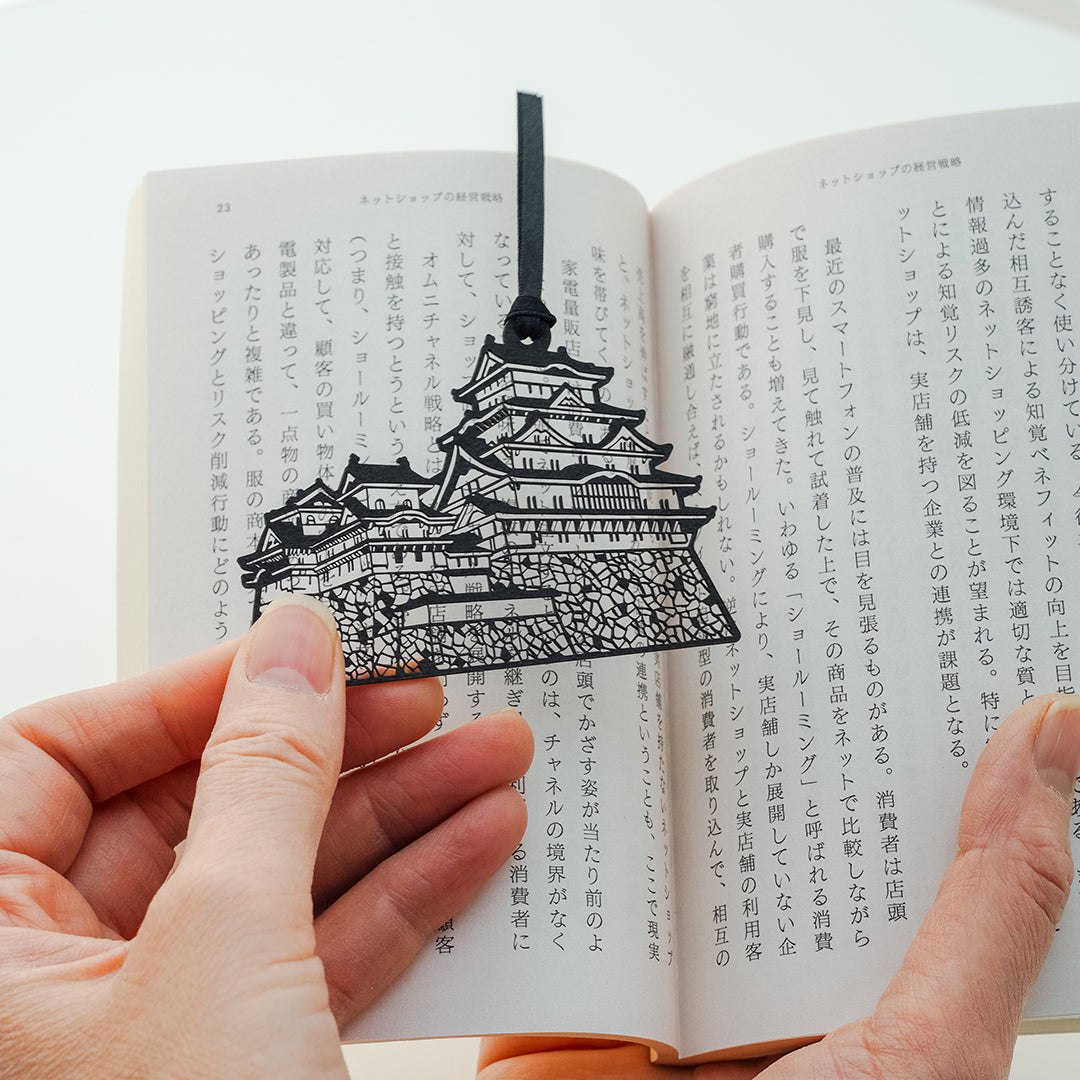 ネットショップの経営戦略
することなく使い分けている。
込んだ相互誘客による知覚ベネフィットの向上を目指
情報過多のネットショッピング環境下では適切な質と
とによる知覚リスクの低減を図ることが望まれる。特に
ットショップは、実店舗を持つ企業との連携が課題となる。
最近のスマートフォンの普及には目を見張るものがある。消費者は店頭
で服を下見し、見て触れて試着した上で、その商品をネットで比較しながら
購入することも増えてきた。いわゆる「ショールーミング」と呼ばれる消費
者購買行動である。ショールーミングにより、実店舗しか展開していない企
業は窮地に立たされるかもしれない。逆 ネットショップと実店舗の利用客
を相互に融通し合えば、 型の消費者を取り込んで、相互の
23
ネットショップの経営戦略
実店舗を持たないネットショップ
と、ネットショ の連携ということも、ここで現実
味を帯びてく
家電量販店 店頭でかざす姿が当たり前のよ
なっている のは、チャネルの境界がなく
対して、ショッ る消費者に
オムニチャネル戦略とは 戦略を展開する 顧客
と接触を持つとうという
(つまり、ショールーミン
対応して、顧客の買い物体
電製品と違って、一点物の商
あったりと複雑である。服の商
ショッピングとリスク削減行動にどのよう